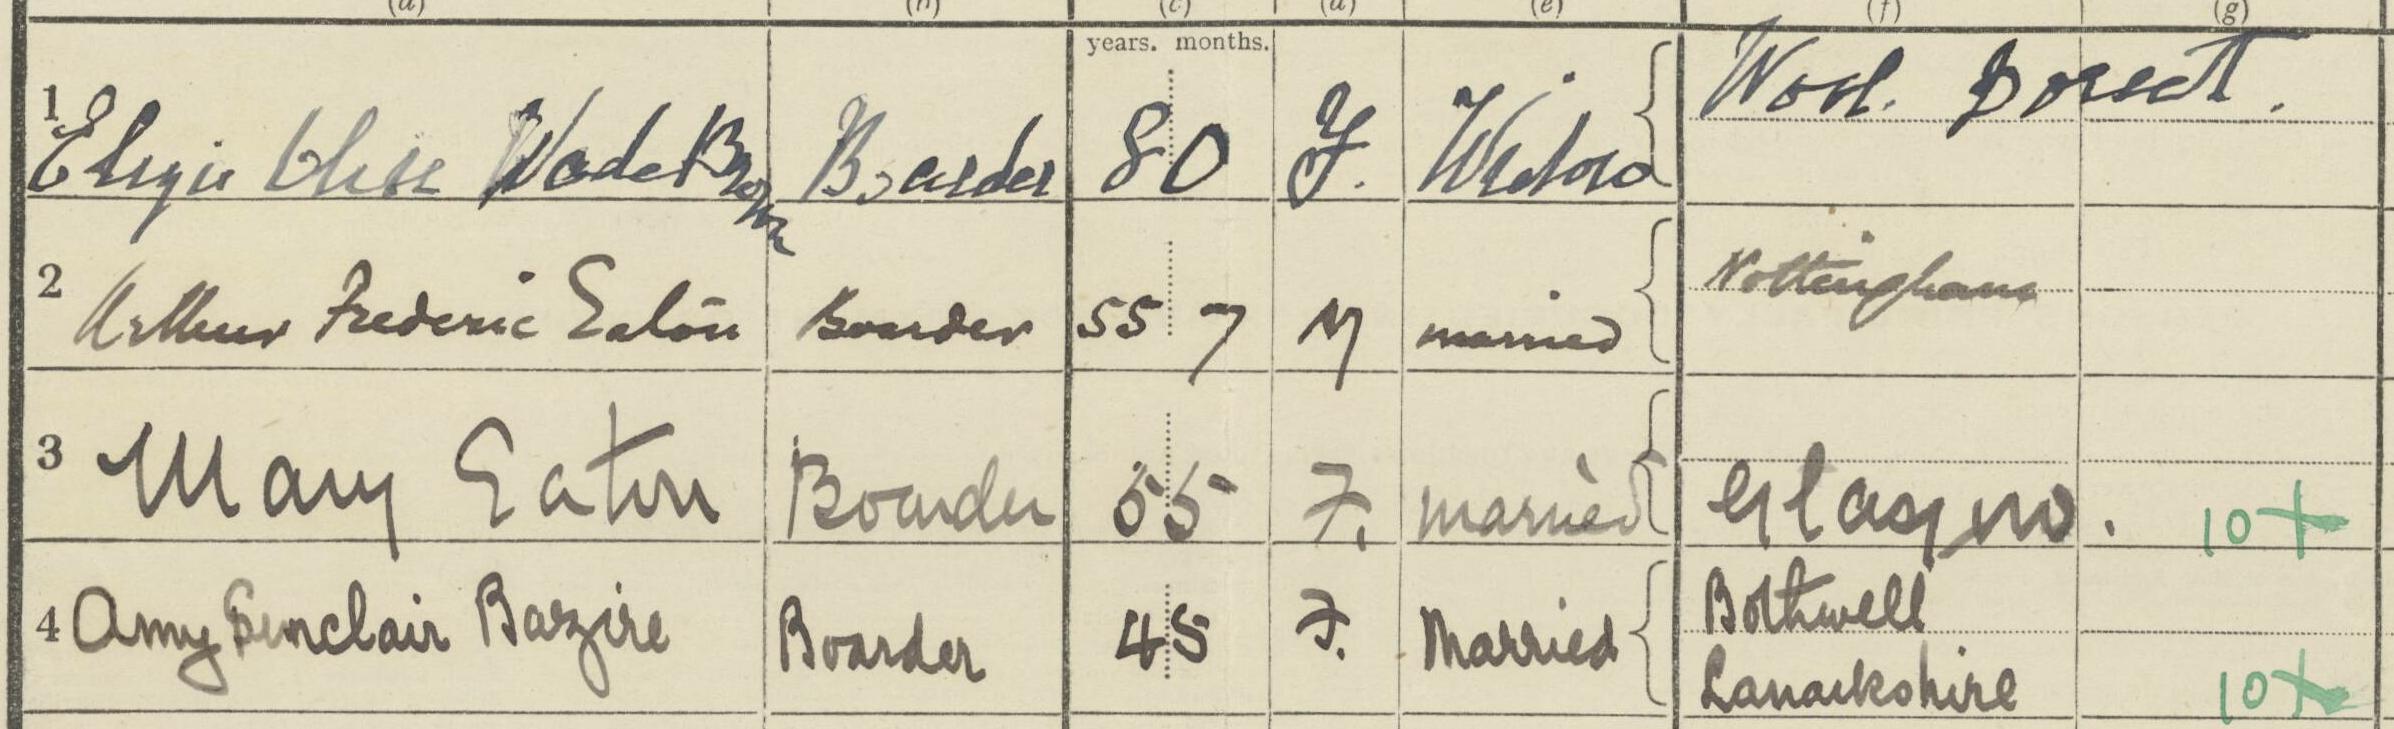 (a) (b) (c) (d) (e) (f) (g)
years. months.
1 Wade Brown Boarder 80 F. Widow Wool. Dorset.
2 Arthur Frederic Eaton Boarder 55 7 M married Nottingham
3 Mary Eaton Boarder 55 F. married Glasgow. 10+
4 Amy Sinclair Bazire Boarder 45 F. Married Bothwell
Lanarkshire 10+